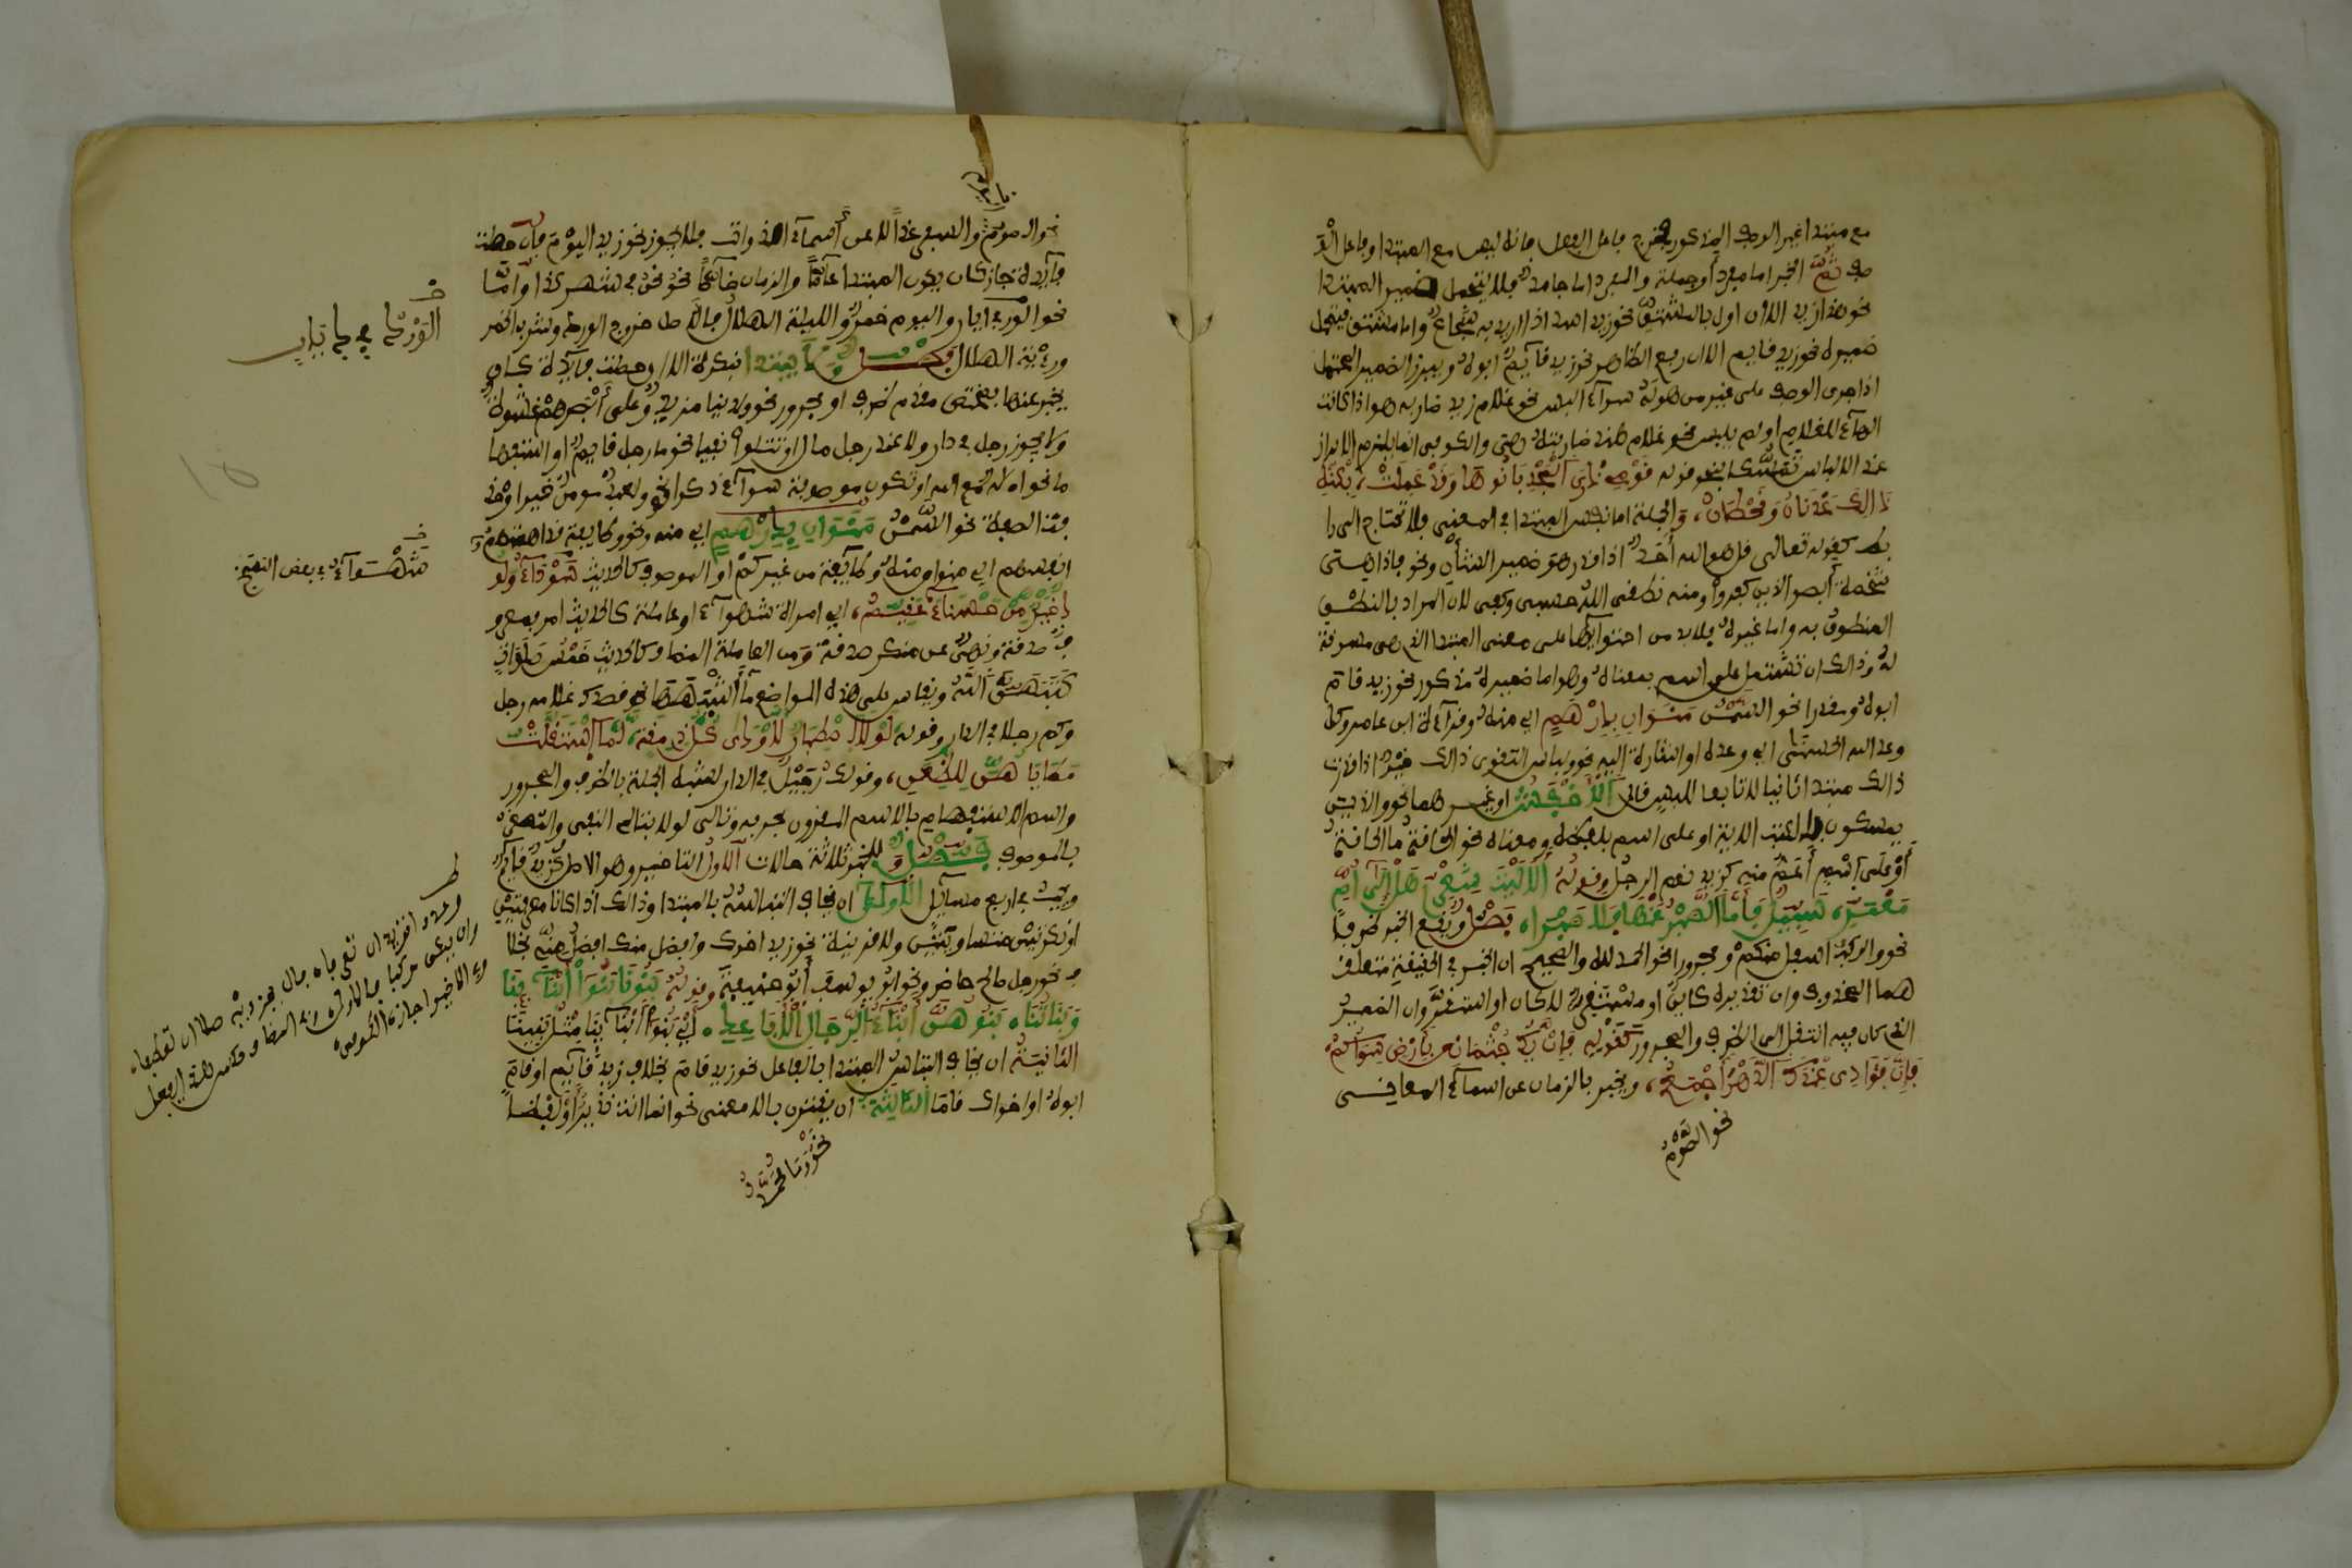 مع مبتدا غير الوصف المذكور فخرج فاعل الفعل فانه ليس مع المبتدا وفاعل الو
صف ثم الخبر اما مفرد او جملة والمفرد اما جامد فلا يتحمل ضمير المبتدا
نحو هذا زيد الا ان اول بالمشتق نحو زيد اسد اذا اريد به شجاع واما مشتق فيتحمل
ضميره نحو زيد قايم الا ان رفع الظاهر نحو زيد قآيم ابوه ويبرز الضمير المتحمل
اذا جرى الوصف على غير من هو له سوآء البس نحو غلام زيد ضاربه هو اذا كانت
الهآء للغلام او لم يلبس نحو غلام هند ضاربته هي والكوفي انما يلتزم الابراز
عند الالباس تمسكا بنحو قوله قومي ذرى المجد بانوها وقد علمت، بكنه
ذالك عدنان وقحطان، والجملة اما نفس المبتدا في المعنى فلا تحتاج الى را
بط كقوله تعالى قل هو الله أحد اذا قدر هو ضمير الشأن ونحو فاذا هي
شاخصة أبصر الذين كفروا ومنه نطقي الله حسبي وكفى لان المراد بالنطق
المنطوق به واما غيره فلا بد من احتوايها على معنى المبتدا الذي هي مسوقة
له وذالك ان تشتمل على اسم بمعناه وهو اما ضميره مذكور نحو زيد قام
ابوه ومقدرا نحو السمن منوان بدرهم اي منه وقرآءة ابن عامر وكل
وعد الله الحسنى اي وعده او اشارة اليه نحو ولباس التقوى ذالك خير اذا قدرت
ذالك مبتدا ثانيا لا تابعا للباس قال الأخفش او غيرهما نحو والذين
يمسكون بالكتب الاية او على اسم بلفظه ومعناه نحو الحاقة ما الحاقة
أو على اسم أعم منه كزيد نعم الرجل وقوله ألا ليت شعري هل إلى أم
معمر، سبيل فأما الصبر عنها فلا صبرا، فصل ويقع الخبر ظرفا
نحو والركب اسفل منكم ومجرورا نحو الحمد لله والصحيح ان الخبر في الحقيقة متعلق
هما المحذوف وان تقديره كاين او مستقر لا كان او استقر وان الضمير
الذي كان فيه انتقل الى الظرف والمجرور كقوله فإن يك جثماني بأرض سواكم،
فإن فؤادي عندك الدهر أجمع، ويخبر بالزمان عن اسمآء المعاني
نحو الصوم
نحو الصوم والسفر غدا لا عن أسمآء الذوات فلا يجوز نحو زيد اليوم فإن حصلت
فآيدة جاز كان يكون المبتدا عآما والزمان خاصا نحو نحن في شهر كذا وامّا
نحو الورد في ايار واليوم خمر والليلة الهلال فالاصل خروج الورد وشرب الخمر
ورءية الهلال فصل ولا يبتدا بنكرة الا ان حصلت فآيدة كان
يخبر عنها بمختص مقدم ظرف او مجرور نحو ولدينا مزيد وعلى أبصرهم غشوة
ولا يجوز رجل في دار ولا عند رجل مال او تتلوا نفيا نحو ما رجل قايم او استفهاما
نحو أله مع الله او تكون موصوفة سوآء ذكرا نحو ولعبد مومن خير او حذ
فت الصفة نحو السمن منوان بدرهم اي منه ونحو وطايفة قد اهمتهم
انفسهم اي منوان منه وطآيفة من غيركم او الموصوف كالحديث سودآء ولود
خير من حسنآء عقيم، اي امراة سودآء او عاملة كالحديث امر بمعرو
ف صدقة ونهي عن منكر صدقة ومن العاملة المضافة كالحديث خمس صلوات
كتبهن الله ويقاس على هذه المواضع ما أشبهها نحو قصدك غلامه رجل
وكم رجلا في الدار وقوله لولا اصطبار لأودى كل ذي مقة، لما استقلت
مطايا هن للظعن، وقولك رجيل في الدار لشبه الجملة بالظرف والمجرور
واسم الاستفهام بالاسم المقرون بحرفه وتالي لولا بتالي النفي والمصغر
بالموصوف فصل وللخبر ثلاثة حالات الأول التاخير وهو الاصل كزيد قايم
ويجب في اربع مسآيل الأولى ان يخاف التباسه بالمبتدا وذالك اذا كانا معرفتين
او نكرتين متساويتين ولا قرينة نحو زيد اخوك وافضل منك افضل مني بخلا
ف نحو رجل صالح حاضر ونحو ابو يوسف أبو حنيفة وقوله بنونا بنو أبنآئنا
وبناتنا، بنوهن أبنآء الرجال الأباعد، أي بنو أبنآئنا مثل بنينا
الثانية ان يخاف التباس المبتدا بالفاعل نحو زيد قام بخلاف زيد قآيم او قام
ابوه او اخواك قاما الثالثة: ان يقترن بالا معنى نحو انما انت نذير أو لفظا
نحو وما محمد
الورد في ايار
شوهآء في بعض النسخ